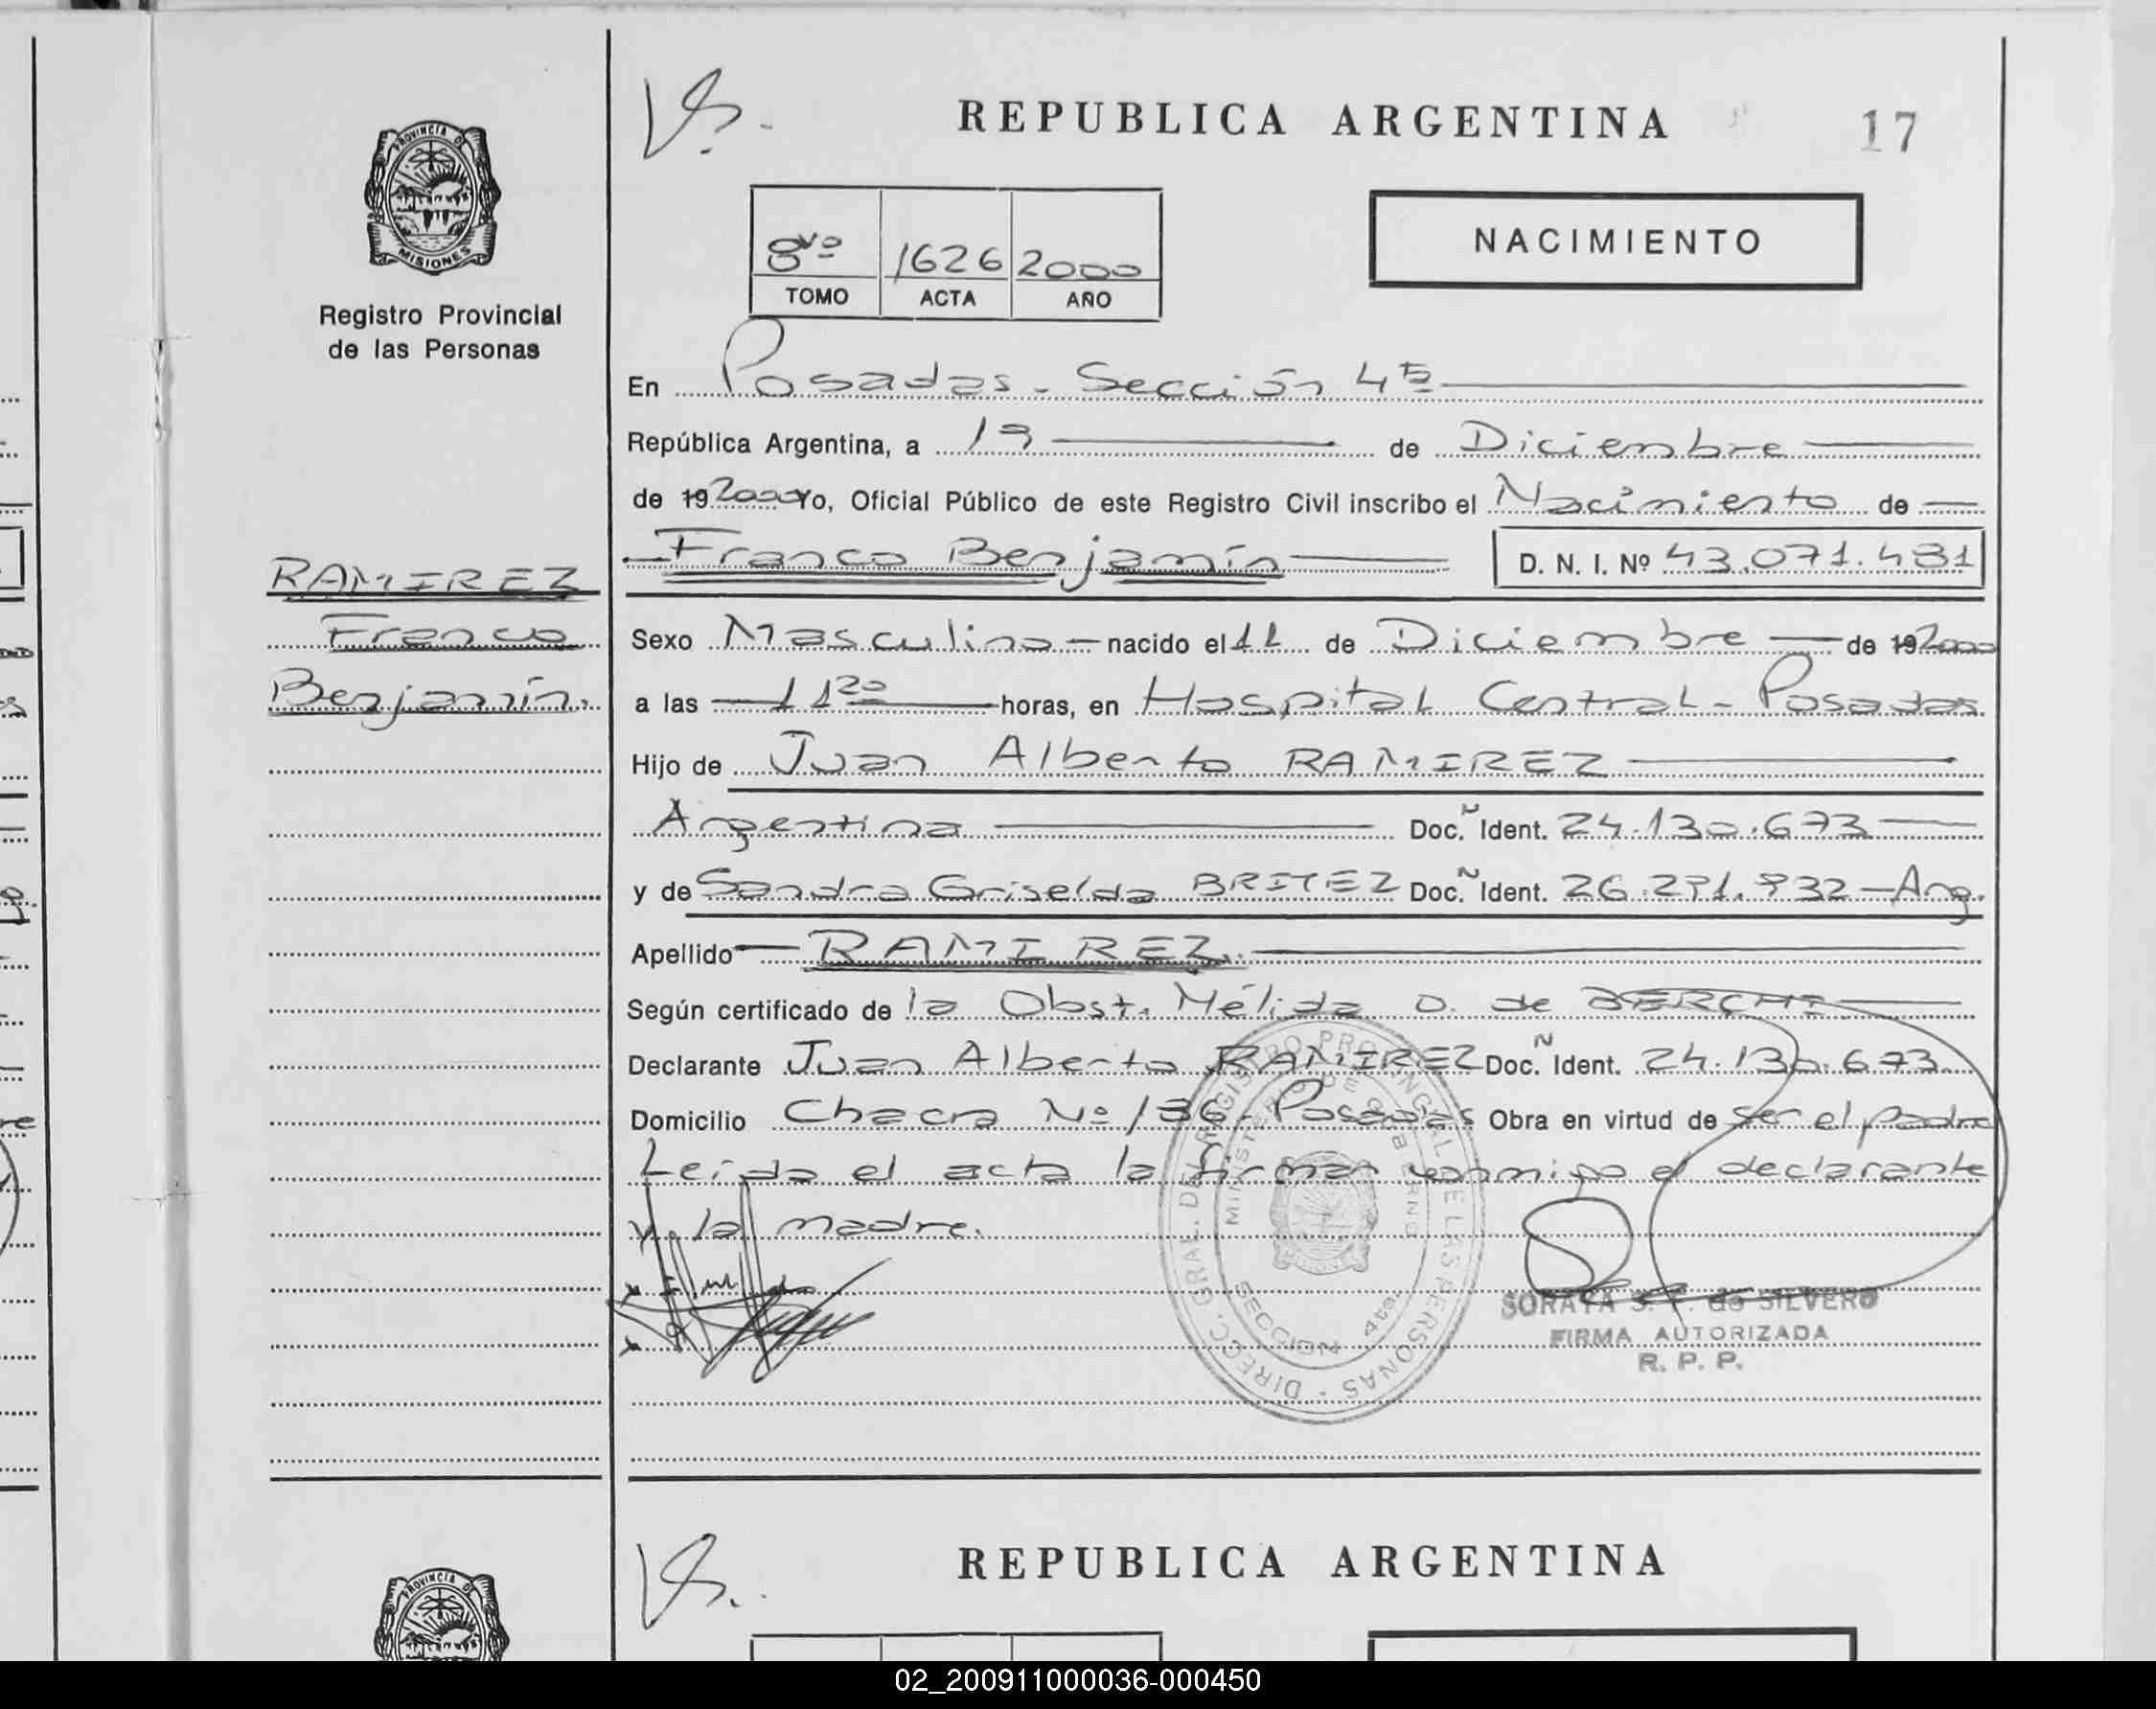 REPUBLICA ARGENTINA
17
PROVINCIA DE
MISIONES
Registro Provincial
de las Personas
8vo 1626 2000
TOMO ACTA AÑO
NACIMIENTO
En Posadas - Sección 4ta
República Argentina, a 19 de Diciembre
de 19 2000 Yo, Oficial Público de este Registro Civil inscribo el Nacimiento de
Franco Benjamín D. N. I. Nº 43.071.481
RAMIREZ
Franco
Benjamín.
Sexo Masculino nacido el 11 de Diciembre de 19 2000
a las 11 20 horas, en Hospital Central - Posadas
Hijo de Juan Alberto RAMIREZ
Argentina Doc. Ident. 24.130.673
y de Sandra Griselda BRITEZ Doc. Ident. 26.291.932 - Arg.
Apellido RAMIREZ.
Según certificado de la Obst. Nélida O. de
Declarante Juan Alberto RAMIREZ Doc. Ident. 24.130.673
Domicilio Chacra Nº 136 - Posadas Obra en virtud de ser el padre
Leída el acta la firman conmigo el declarante
y la madre.
DIREC. GRAL. DEL REGISTRO PROVINCIAL DE LAS PERSONAS
MINISTERIO DE GOBIERNO
SECCION 4ta.
SORAYA S. de SILVERO
FIRMA AUTORIZADA
R. P. P.
REPUBLICA ARGENTINA
PROVINCIA DE
02_200911000036-000450